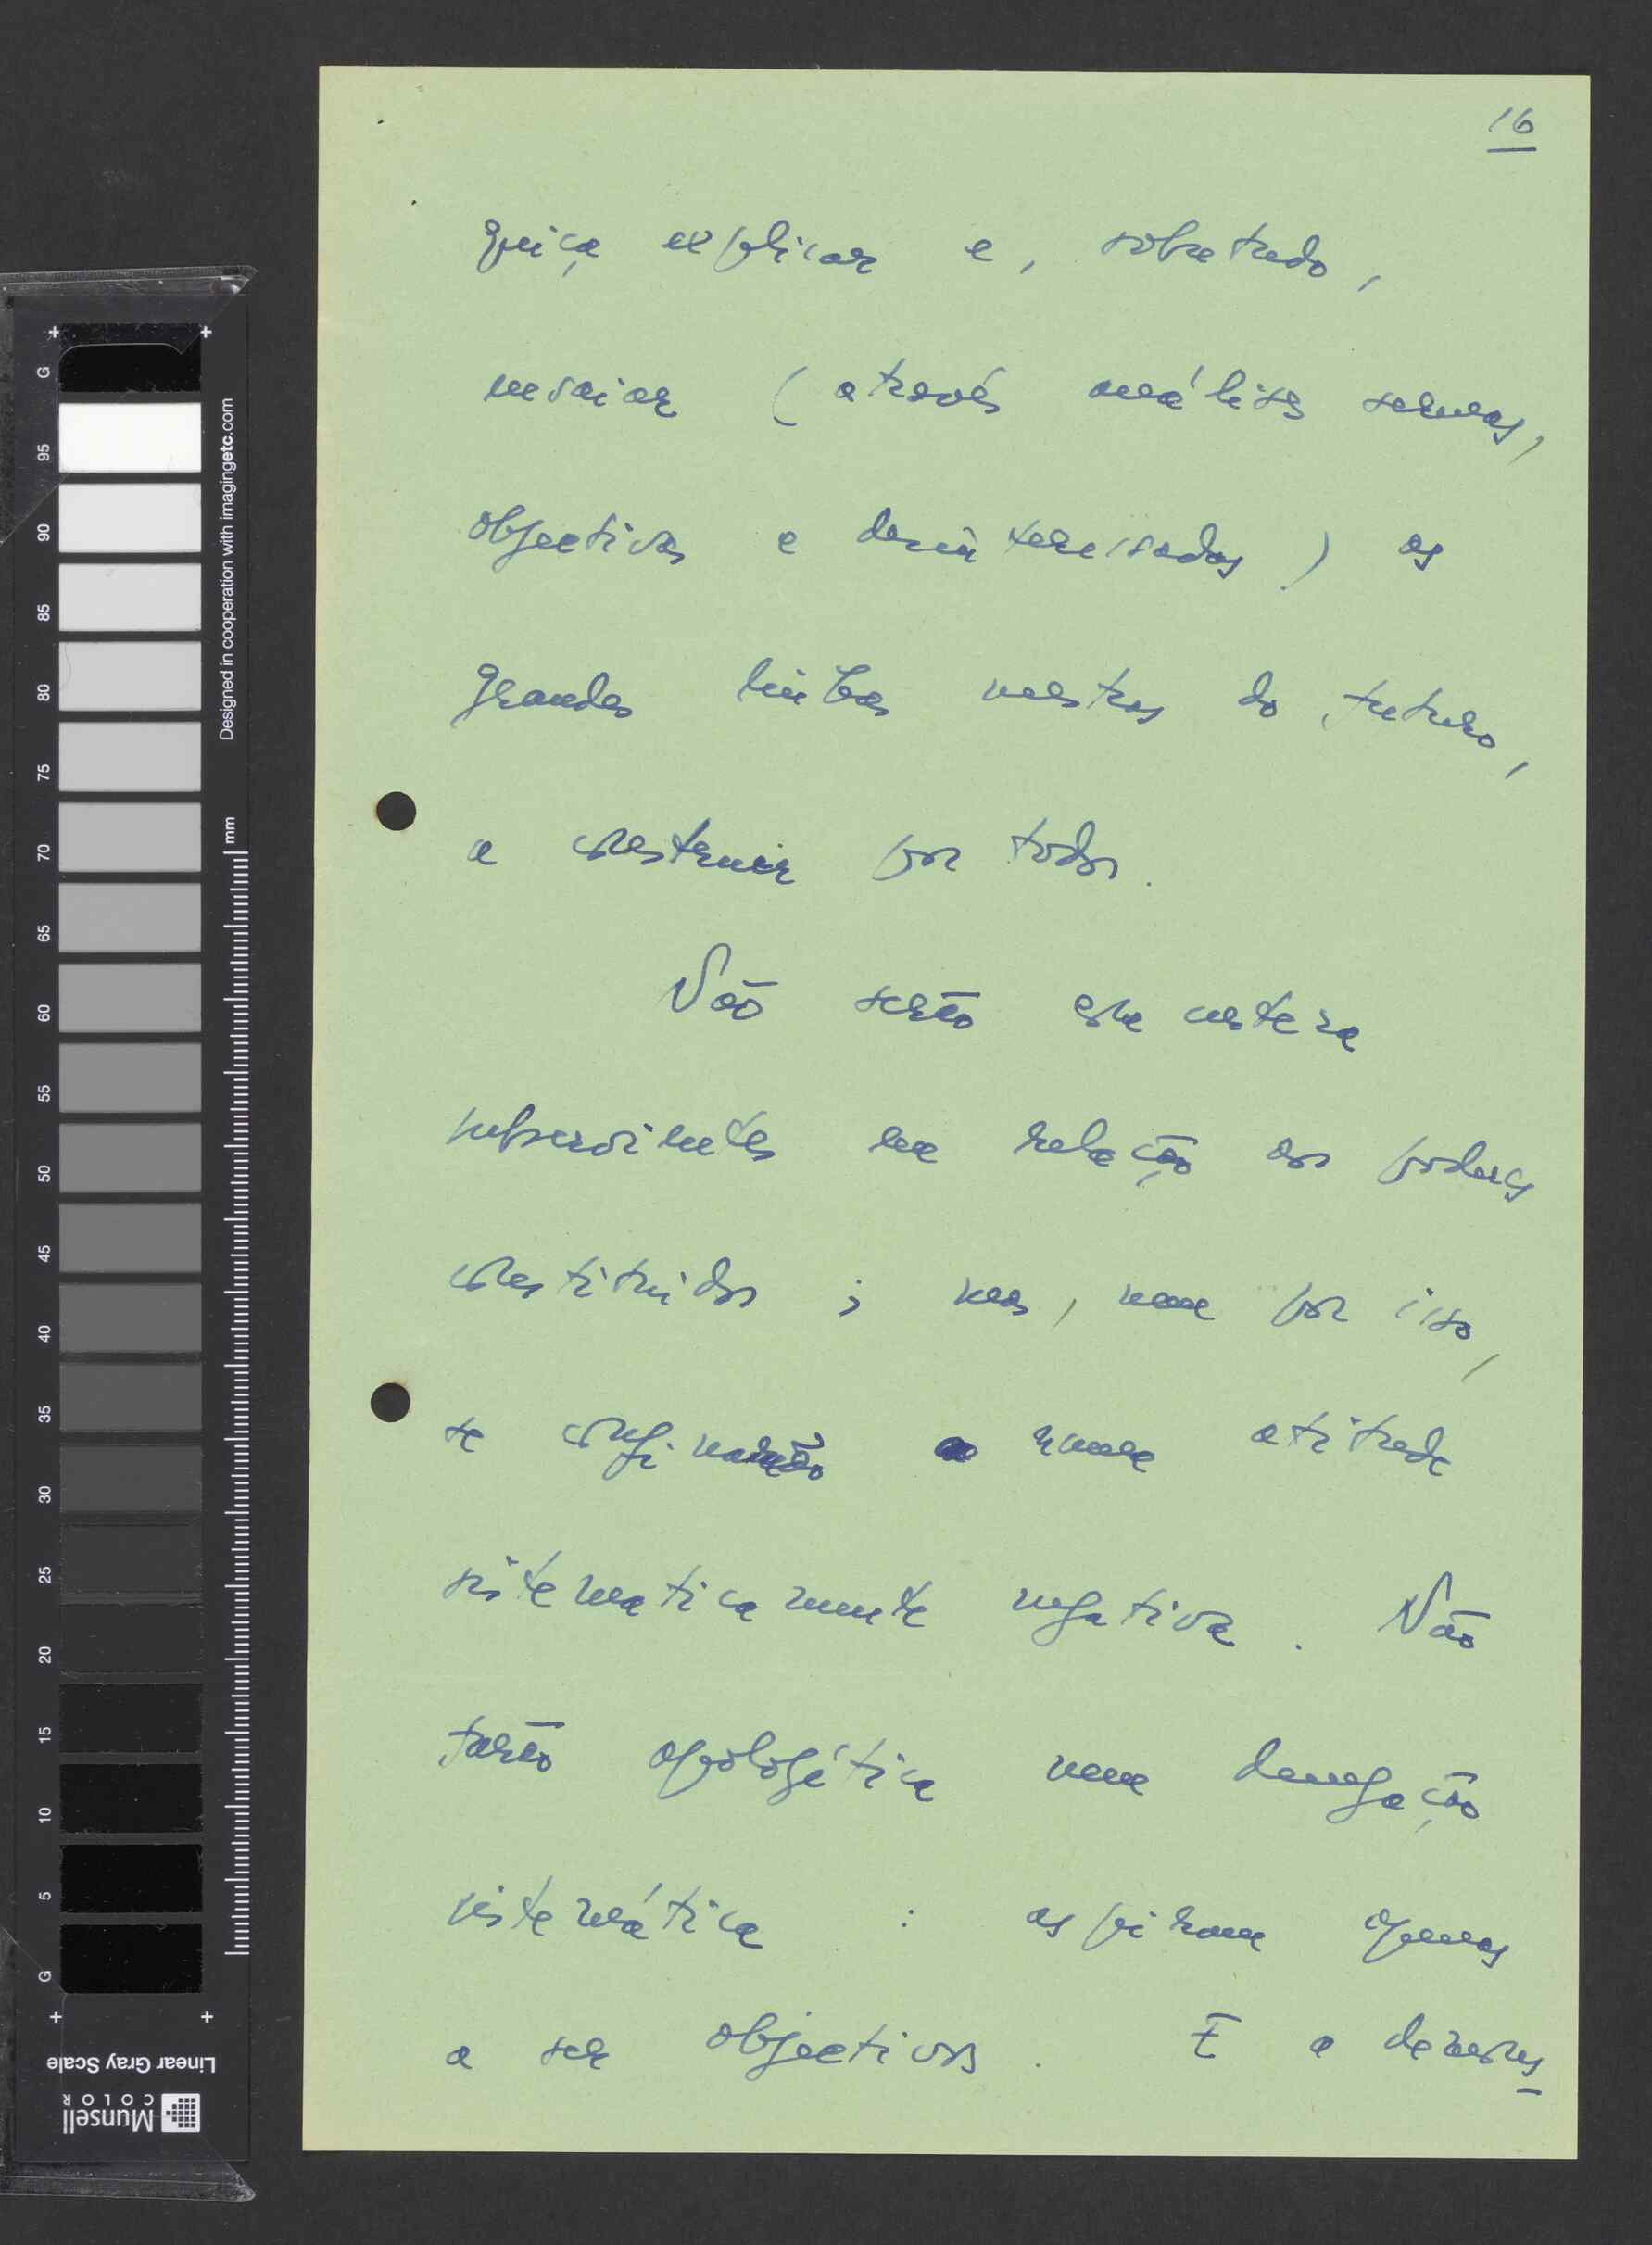 16
quiçá explicar e, sobretudo,
ensaiar (através análises serenas,
objectivas e desinteressadas) as
grandes linhas mestras do futuro,
a construir por todos.
Não serão com certeza
subservientes em relação aos poderes
constituidos; mas, nem por isso,
se confinarão numa atitude
sistematicamente negativa. Não
farão apologética nem denegação
sistemática : aspiram apenas
a ser objectivos. E a demons
G
95
90
85
80
75
70
65
60
55
50
45
40
35
30
25
20
15
10
5
G
mm
Designed in cooperation with imagingetc.com
Linear Gray Scale
Munsell
COLOR